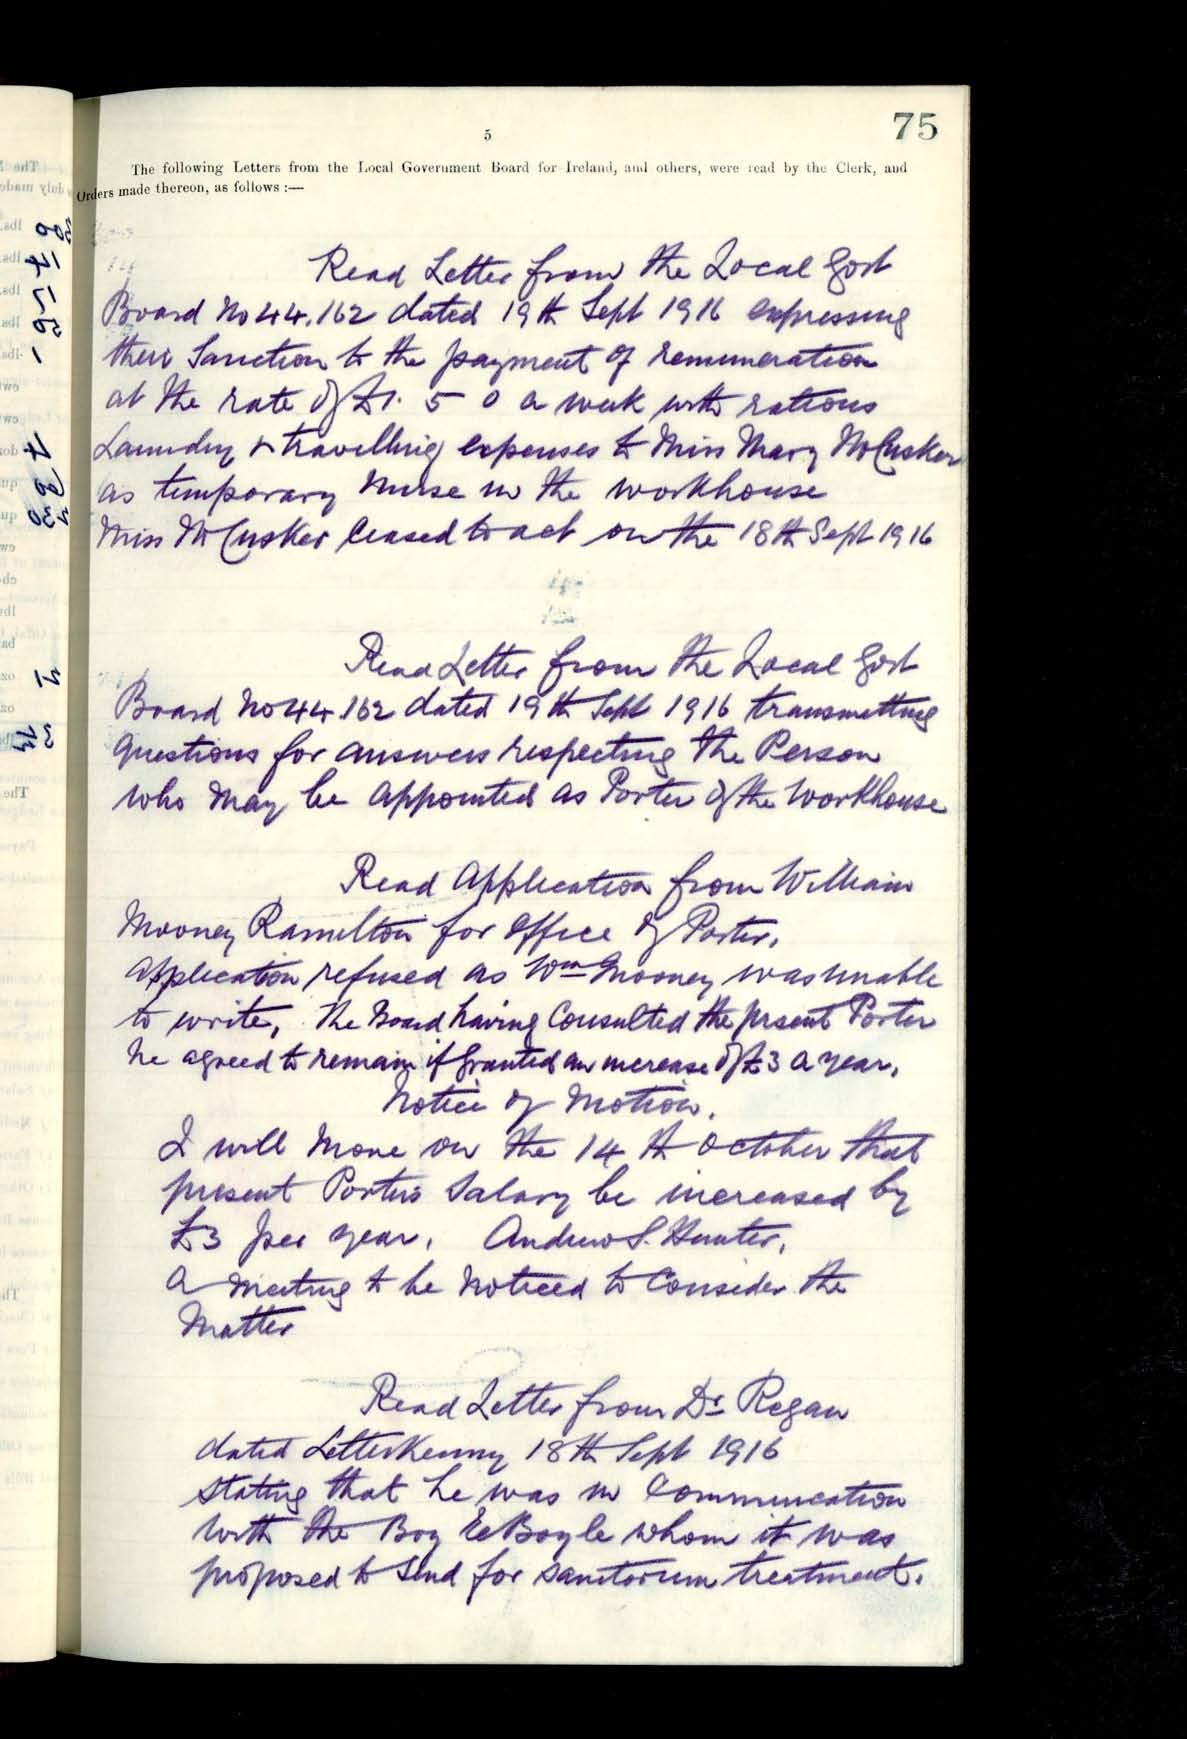 75
5
The following Letters from the Local Government Board for Ireland, and others, were read by the Clerk, and
Orders made thereon, as follows :—
Read Letter from the Local Govt
Board No 44.162 dated 19th Sept 1916 expressing
their Sanction to the payment of remuneration
at the rate of £1. 5 0 a week with rations
Laundry & travelling expenses to Miss Mary McCusker
as temporary nurse in the workhouse
Miss McCusker ceased to act on the 18th Sept 1916
Read Letter from the Local Govt
Board No 44.162 dated 19th Sept 1916 transmitting
questions for answers respecting the Person
who may be appointed as Porter of the Workhouse
Read Application from William
Mooney Ramelton for Office of Porter.
Application refused as Wm Mooney was unable
to write, The Board having Consulted the present Porter
he agreed to remain if granted an increase of £3 a year.
Notice of Motion.
I will move on the 14th October that
present Porters Salary be increased by
£3 per year. Andrew S. Hunter.
A meeting to be noticed to Consider the
Matter
Read Letter from Dr Regan
dated Letterkenny 18th Sept 1916
stating that he was in Communication
with the Boy Boyle whom it was
proposed to send for sanitorium treatment.